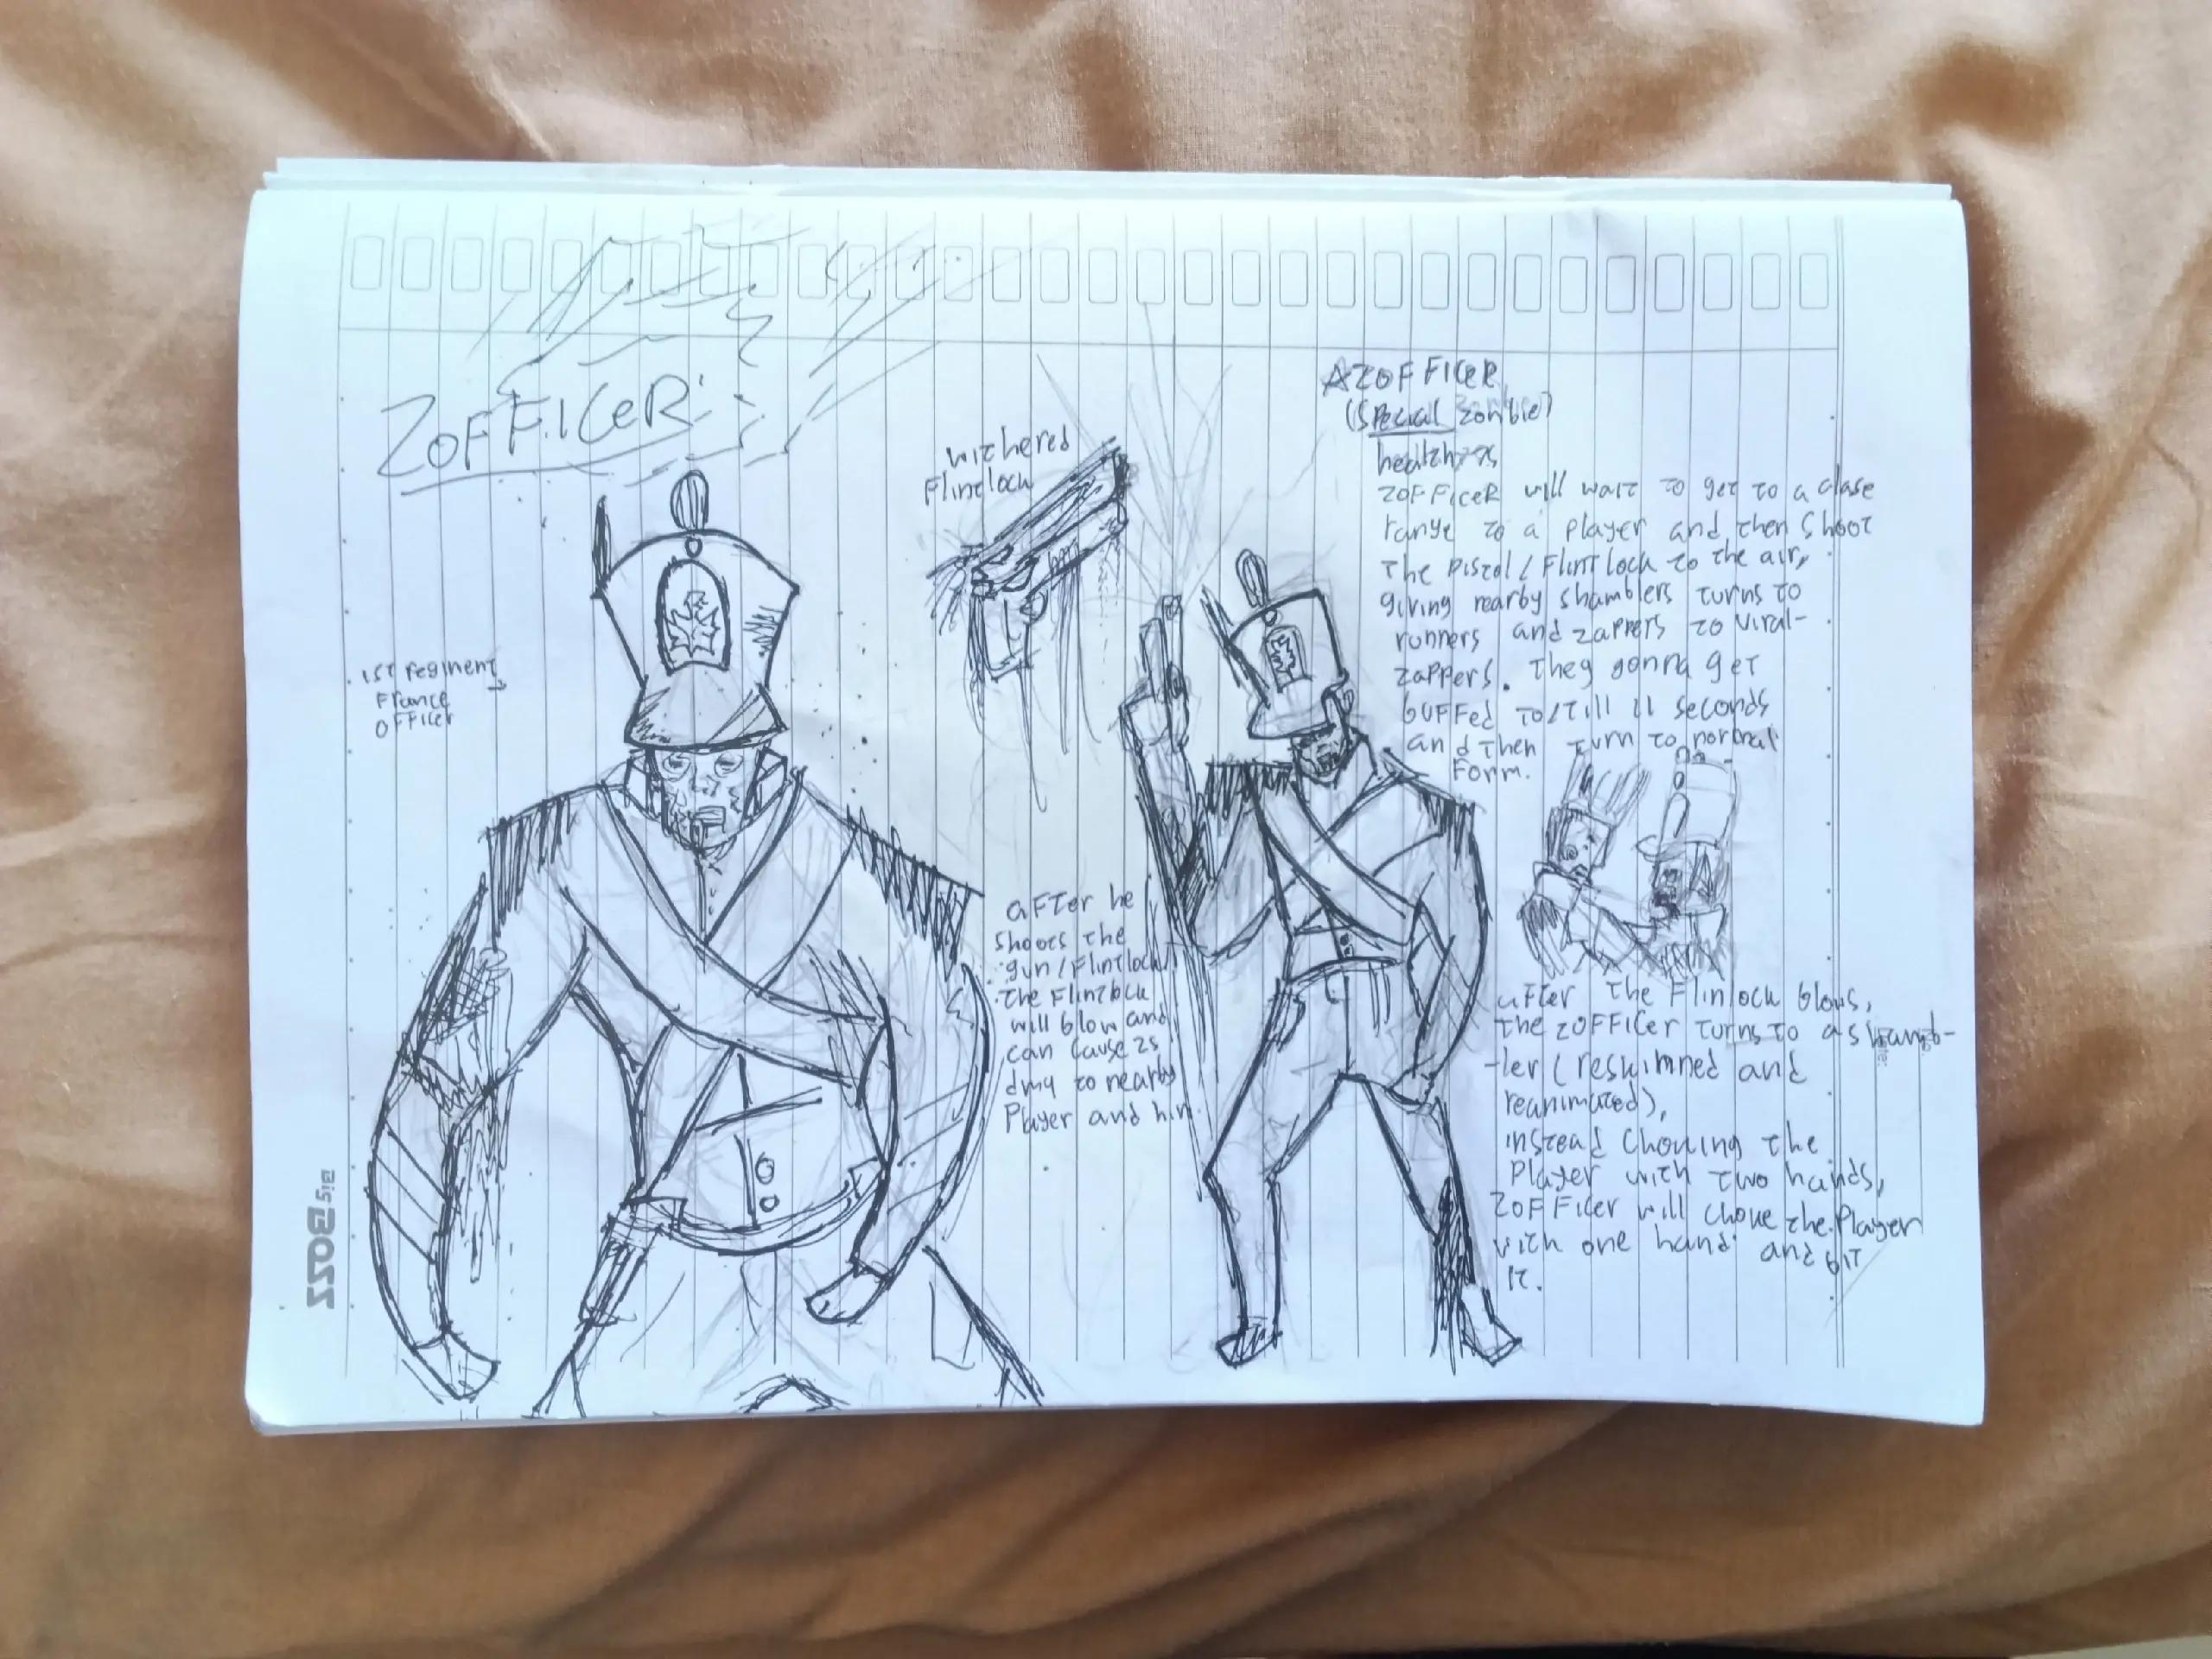 ZOFFICER
1st regiment
France
officer
withered
Flintlock
ZOFFICER
(special zombie)
ZOFFiceR will wait to get to a close
range to a player and then shoot
the pistol / Flintlock to the air,
giving nearby shamblers turns to
runners and zappers to viral-
zappers. they gonna get
buffed to/till 11 seconds
and then turn to normal
Form.
after he
shoots the
gun / Flintlock
the Flintlock
will blow and
can cause 25
dmg to nearby
Player and him
after the Flinlock blows,
the ZOFFICer turns to a shamb-
-ler (reskinned and
reanimated),
instead choking the
Player with two hands,
ZOFFicer will choke the Player
with one hand and bit
it.
Big BOZZ